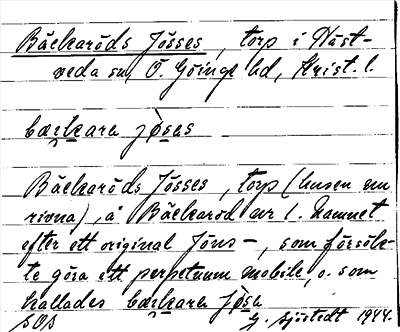 Bäckaröds Jösses, torp i Häst-
veda sn, Ö. Göinge hd, Krist. l.
bækara jøsas
Bäckaröds Jösses, torp (husen nu
rivna), å Bäckaröd nr 1. Namnet
efter ett original Jöns –, som försök-
te göra ett perpetuum mobile, o. som
kallades bækara jøsa
SOS G. Sjöstedt 1944.